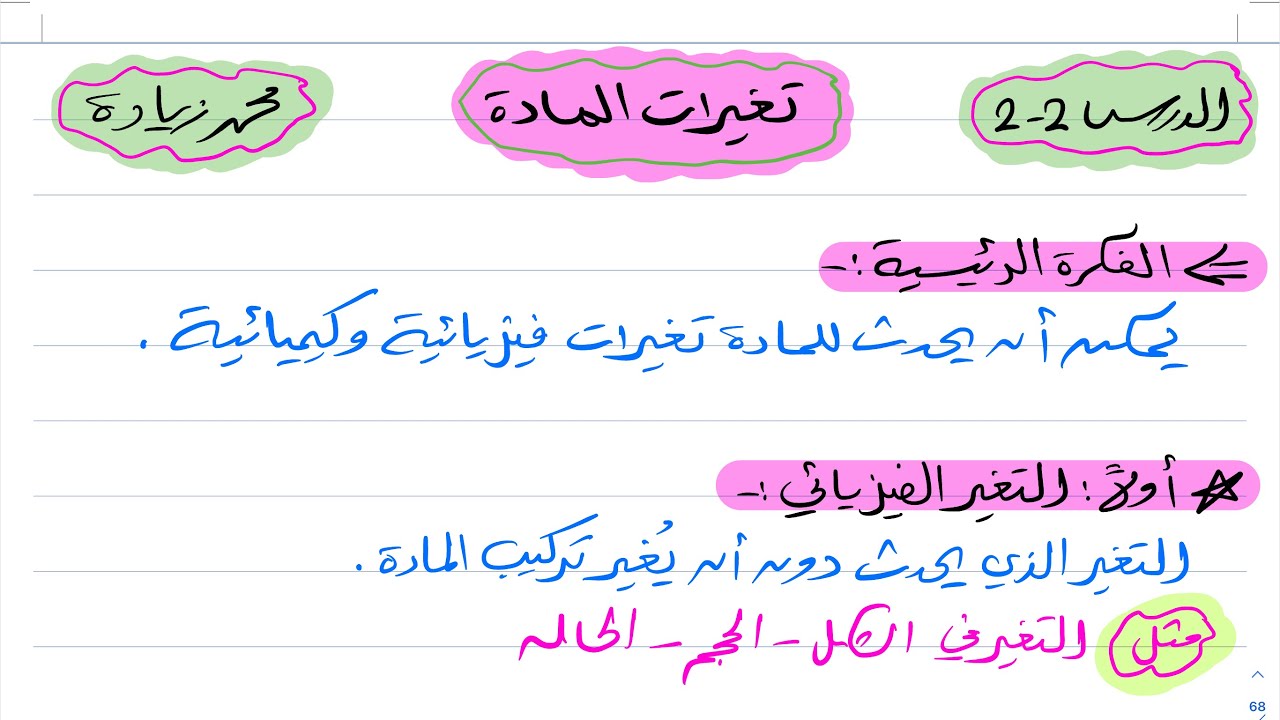 الدرس 2-2
تغيرات المادة
محمد زيادة
الفكرة الرئيسية :-
يمكن أن يحدث للمادة تغيرات فيزيائية وكيميائية .
أولاً : التغير الفيزيائي :-
التغير الذي يحدث دون أن يُغير تركيب المادة .
مثل التغير في الشكل - الحجم - الحاله
68